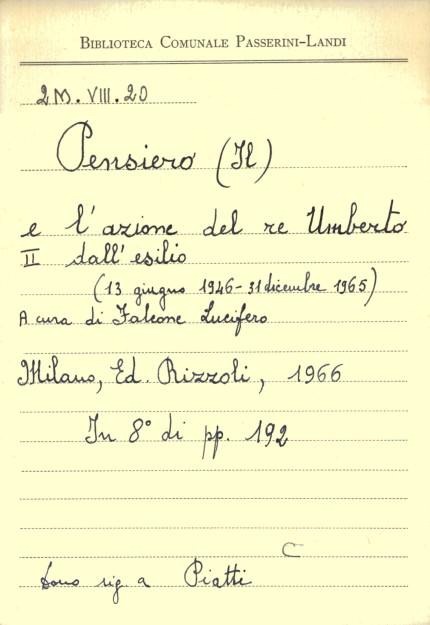 BIBLIOTECA COMUNALE PASSERINI-LANDI
2M.VIII.20
Pensiero (Il)
e l'azione del re Umberto
II dall'esilio
(13 giugno 1946-31 dicembre 1965)
A cura di Falcone Lucifero
Milano, Ed. Rizzoli, 1966
In 8° di pp. 192
C
Dono sig.a Piatti